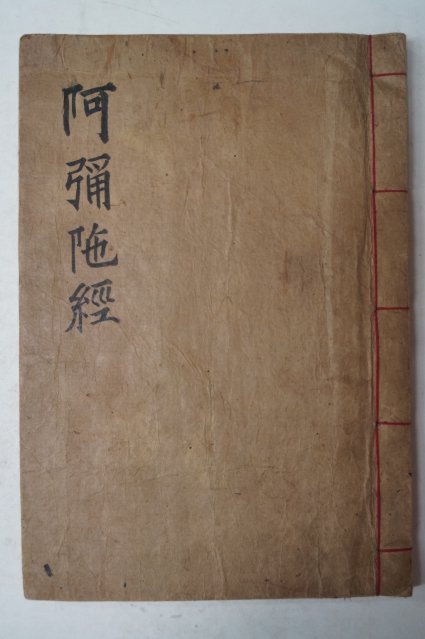 阿彌陁經